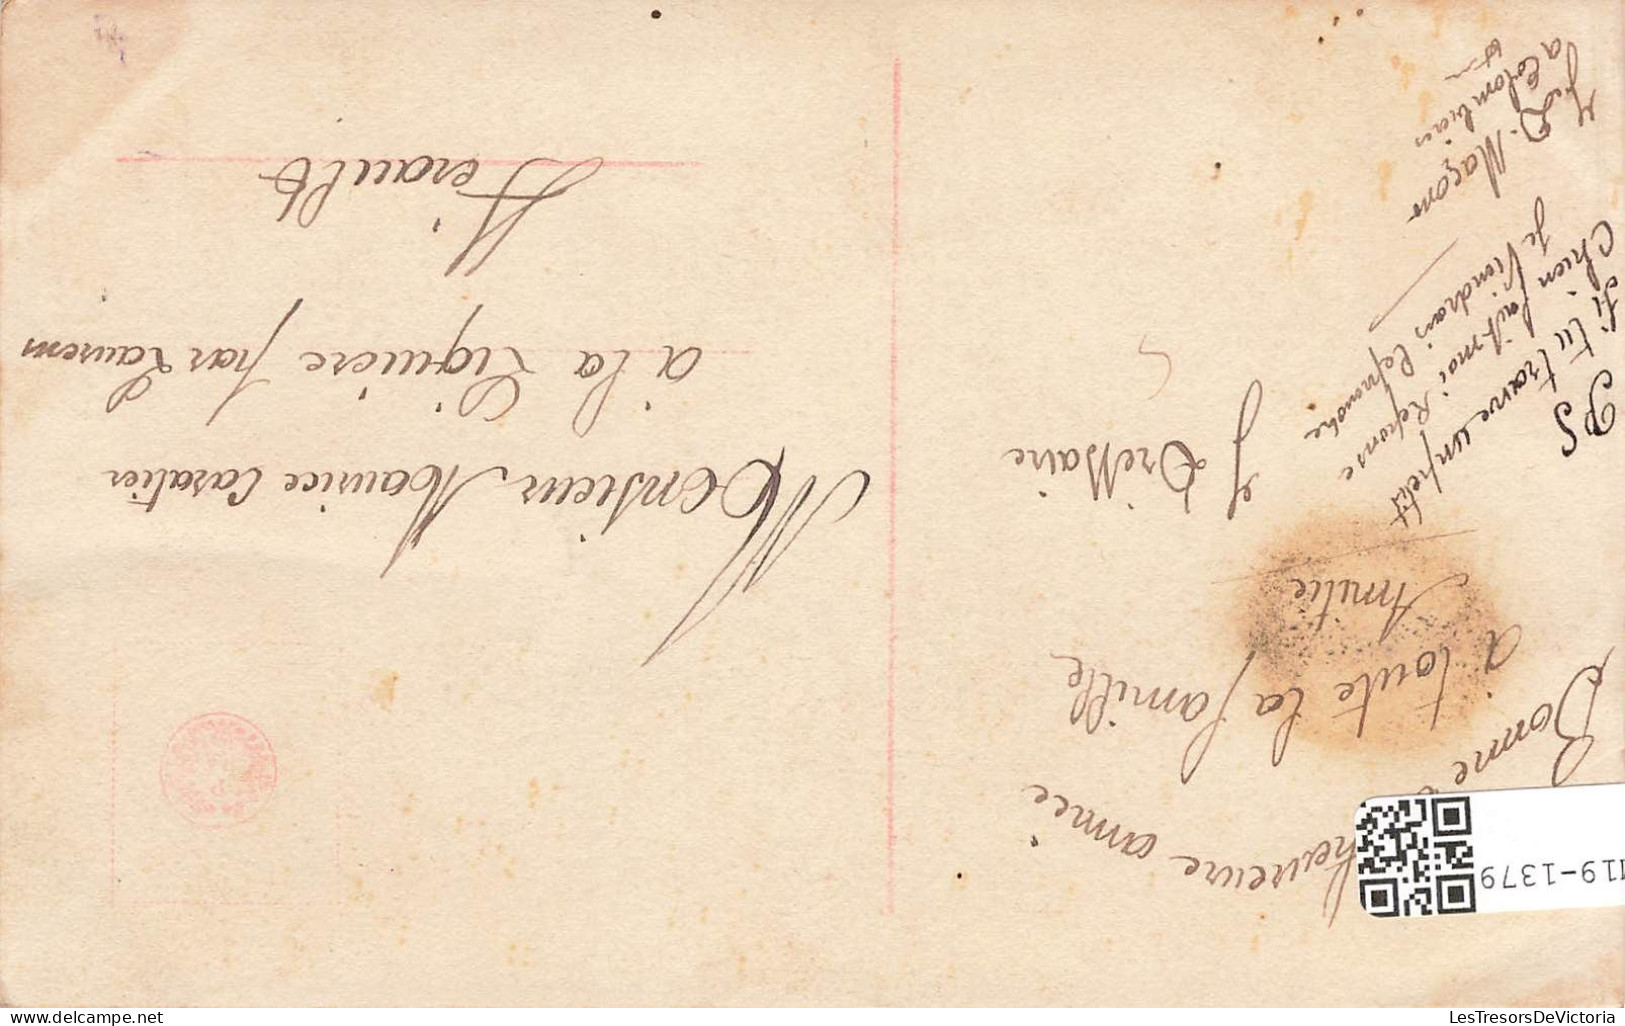 Bonne &
heureuse année
a toute la famille
Amitié
J Dressaire
PS
Si tu trouve un petit
Chien fait moi Reponse
Je Viendrais le prendre
J. D. Maçon
a Colombiers
Monsieur Maurice Cavalier
a la Liquière par Laurens
Hérault
119-1379
LesTresorsDeVictoria